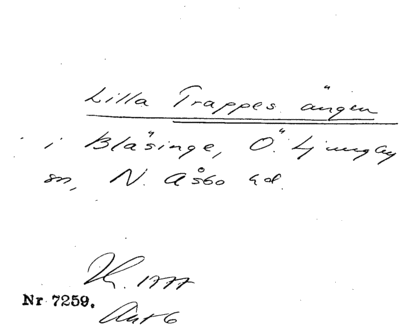 Lilla Trappes ängen
i Bläsinge, Ö. Ljungby
sn, N. Åsbo hd.
Nr 7259.